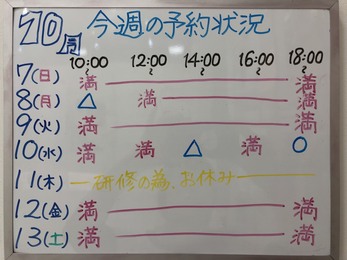 10月 今週の予約状況
10:00〜 12:00〜 14:00〜 16:00〜 18:00〜
7(日) 満 満
8(月) △ 満 満
9(火) 満 満
10(水) 満 満 △ 満 ○
11(木) 研修の為、お休み
12(金) 満 満
13(土) 満 満